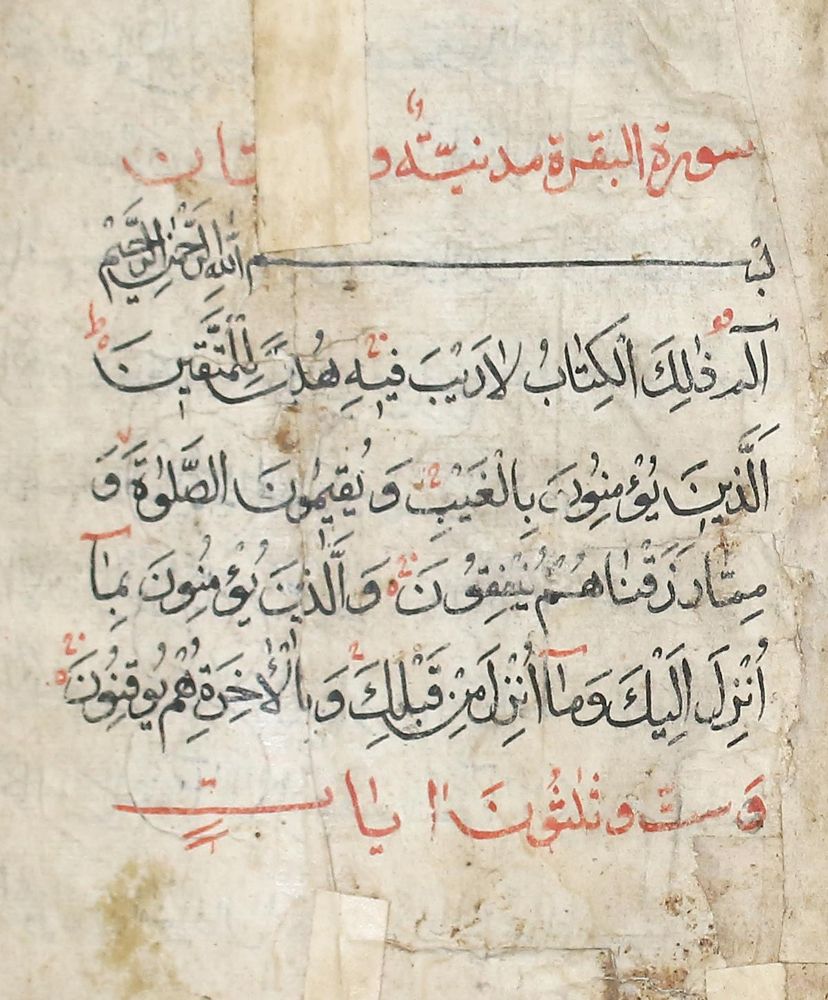 سورة البقرة مدنيّته
بسم اللّه الرّحمٰن الرّحيم
الٓمٓ ذٰلِكَ الْكِتٰابُ لاٰرَيْبَ فيٖهِ هُدىً لِلْمُتَّقيٖنَ
اَلَّذيٖنَ يُؤْمِنُونَ بِالْغَيْبِ وَيُقيٖمُونَ الصَّلٰوةَ وَ
مِمّٰا رَزَقْنٰاهُمْ يُنْفِقُونَ وَالَّذيٖنَ يُؤْمِنُونَ بِمٰٓا
اُنْزِلَ اِلَيْكَ وَمٰٓا اُنْزِلَ مِنْ قَبْلِكَ وَبِالْاٰخِرَةِ هُمْ يُوقِنُونَ
وَ ست وثلثُونَ اٰيٰاتٍ